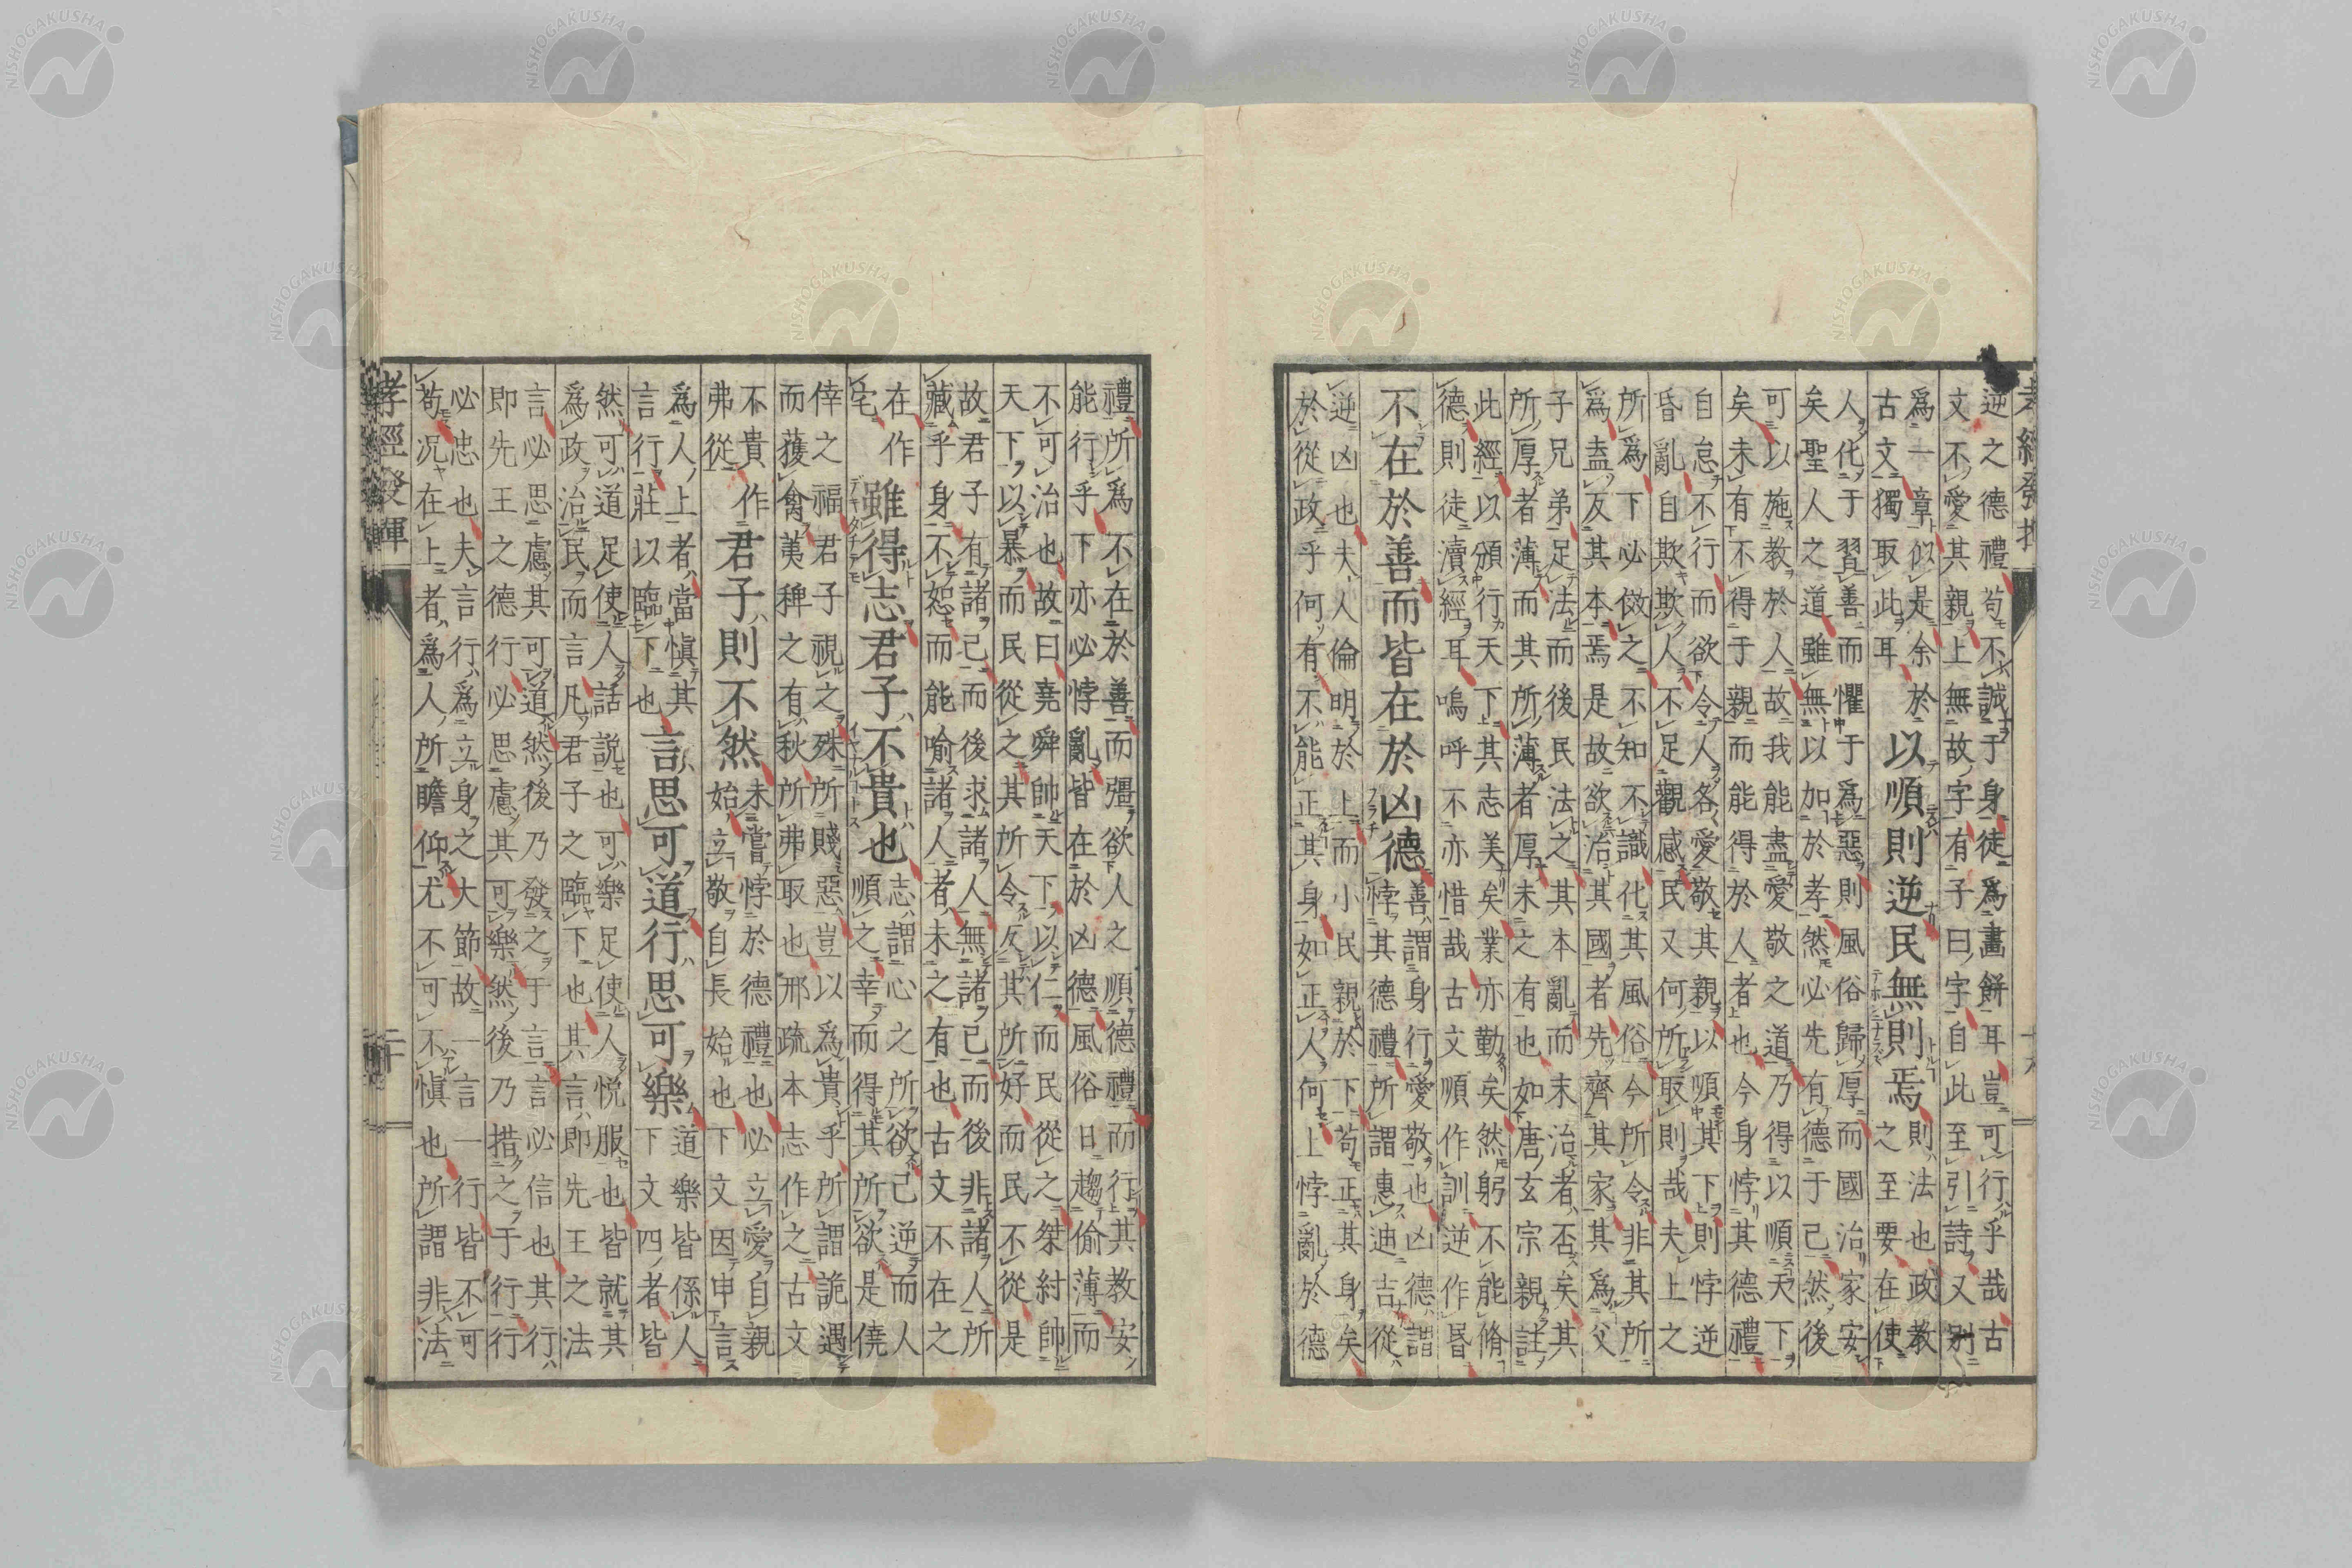 逆之德禮苟不誠于身徒爲畫餠耳豈可行乎哉古
文不愛其親上無故字有子曰字自此至引詩又別
爲一章似是余於
古文獨取此耳
以順則逆民無則焉
則法也政教
之至要在使
人化于習善而懼于爲惡則風俗歸厚而國治家安
矣聖人之道雖無以加於孝然必先有德于己然後
可以施教於人故我能盡愛敬之道乃得以順天下
矣未有不得于親而能得於人者也今身悖其德禮
自怠不行而欲令人各愛敬其親以順其下則悖逆
昏亂自欺欺人不足觀感民又何所取則哉夫上之
所爲下必倣之不知不識化其風俗今所令非其所
爲盍反其本焉是故欲治其國者先齊其家其爲父
子兄弟足法而後民法之其本亂而末治者否矣其
所厚者薄而其所薄者厚未之有也如唐玄宗親註
此經以頒行天下其志美矣業亦勤矣然躬不能脩
德則徒瀆經耳嗚呼不亦惜哉古文順作訓逆作昬
不在於善而皆在於凶德
善謂身行愛敬也凶德謂
悖其德禮所謂惠迪吉從
逆凶也夫人倫明於上而小民親於下苟正其身矣
於從政乎何有不能正其身如正人何上悖亂於德
孝經發揮
十九
禮所爲不在於善而彊欲人之順德禮而行其教安
能行乎下亦必悖亂皆在於凶德風俗日趨偷薄而
不可治也故曰堯舜帥天下以仁而民從之桀紂帥
天下以暴而民從之其所令反其所好而民不從是
故君子有諸己而後求諸人無諸己而後非諸人所
藏乎身不恕而能喻諸人者未之有也古文不在之
在作
宅
雖得志君子不貴也
志謂心之所欲己逆而人
順之幸而得其所欲是僥
倖之福君子視之殊所賤惡豈以爲貴乎所謂詭遇
而獲禽荑稗之有秋所弗取也邢疏本志作之古文
不貴作
弗從
君子則不然
未嘗悖於德禮也必立愛自親
始立敬自長始也下文因申言
爲人上者當愼其
言行莊以臨下也
言思可道行思可樂
道樂皆係人
下文四者皆
然可道足使人話說也可樂足使人悦服也皆就其
爲政治民而言凡君子之臨下也其言即先王之法
言必思慮其可道然後乃發之于言言必信也其行
即先王之德行必思慮其可樂然後乃措之于行行
必忠也夫言行爲立身之大節故一言一行皆不可
苟況在上者爲人所瞻仰尤不可不愼也所謂非法
孝經發揮
二十